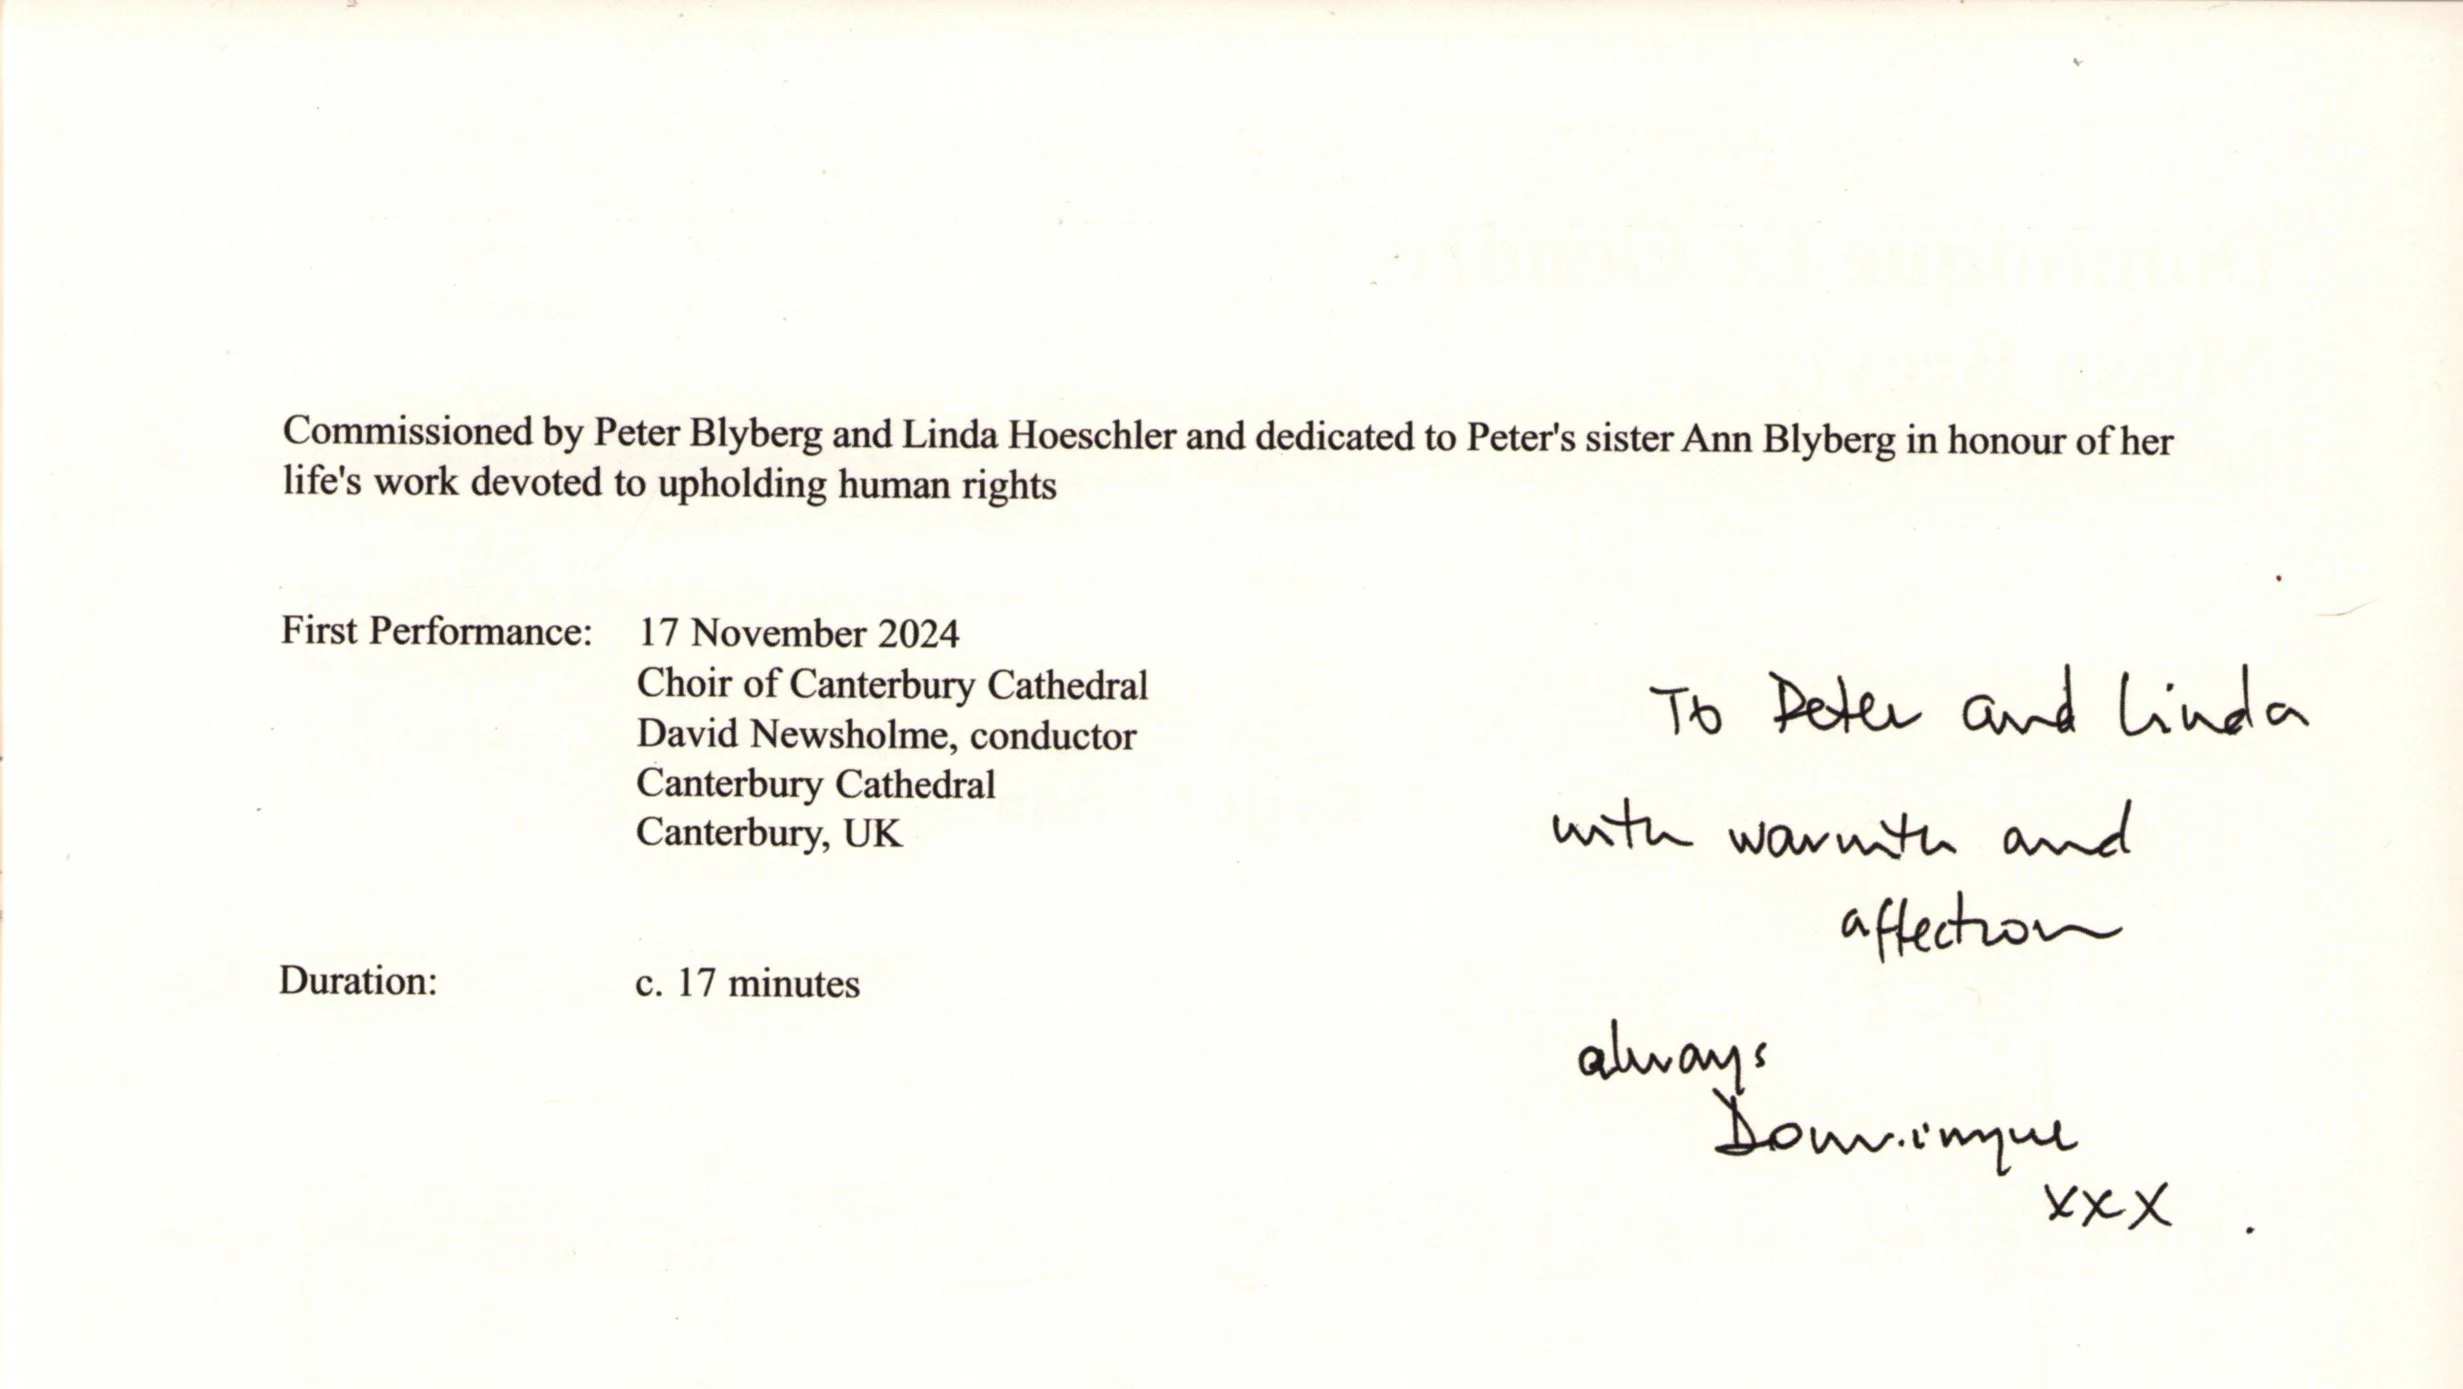 Commissioned by Peter Blyberg and Linda Hoeschler and dedicated to Peter's sister Ann Blyberg in honour of her
life's work devoted to upholding human rights
First Performance: 17 November 2024
Choir of Canterbury Cathedral
David Newsholme, conductor
Canterbury Cathedral
Canterbury, UK
Duration: c. 17 minutes
To Peter and Linda
with warmth and
affection
always
Dominique
xxx